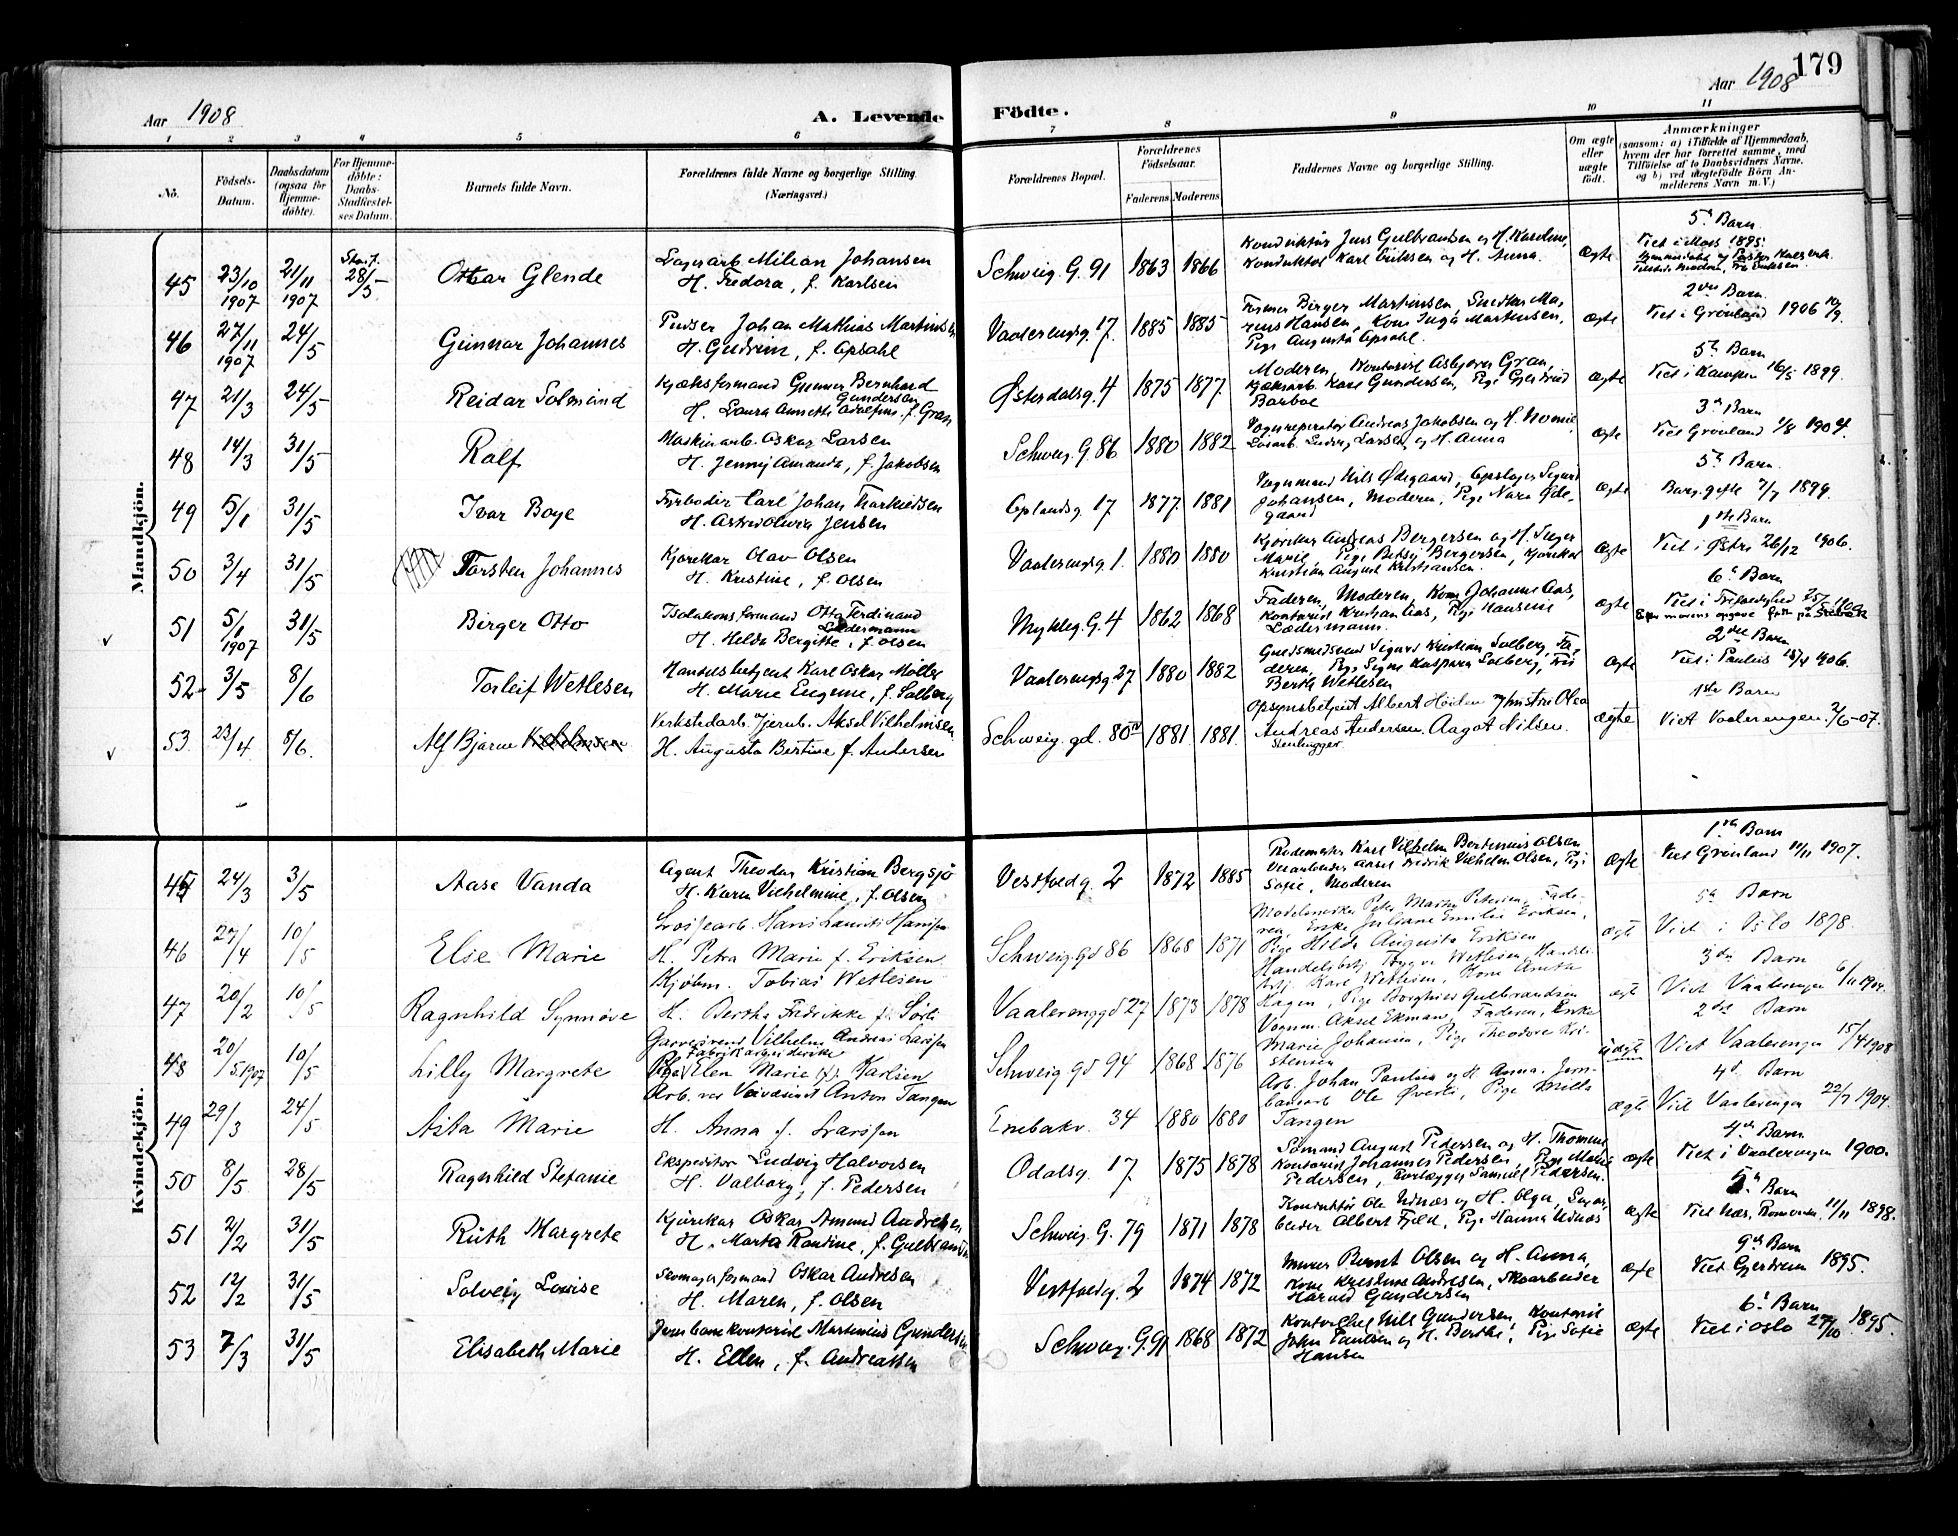 179
Aar 1908
A. Levende Födte.
Aar 1908
1 2 3 4 5 6 7 8 9 10 11
No. Födsels-Datum. Daabsdatum (ogsaa for Hjemmedöbte). For Hjemmedöbte: Daabs-Stadfæstelses Datum. Barnets fulde Navn. Forældrenes fulde Navne og borgerlige Stilling. (Næringsvei.) Forældrenes Bopæl. Forældrenes Födselsaar. Faderens Moderens Faddernes Navne og borgerlige Stilling. Om ægte eller uægte födt. Anmærkninger (saasom: a) i Tilfælde af Hjemmedaab, hvem der har forrettet samme, med Tilföielse af to Daabsvidners Navne, og b) ved uægtefödte Börn Anmelderens Navn m. V.)
Mandkjön.
45 23/10 1907 21/11 1907 28/5 Ottar Glende Lagerarb. Milian Johansen H. Fredora, f. Karlsen Schweig. G. 91 1863 1866 Konduktör Jens Gulbrandsen og H. Karoline, Konduktör Karl Eriksen og H. Anna. Ægte 5t Barn Viet i Moss 1895.
46 27/11 1907 24/5 Gunnar Johannes Pudser Johan Mathias Martinsen H. Gudrun, f. Opsahl Vaalerengg. 17. 1885 1885 Former Birger Martinsen, Snedker Marius Hansen, Kone Inga Martinsen, Pige Augusta Opsahl. Ægte 2det Barn. Viet i Grönland 1906
47 21/3 24/5 Reidar Solmund Kjæksformand Gunner Bernhard Gundersen H. Laura Annette f. Gran Østerdalsg. 4 1875 1877. Moderen, Kontorist Asbjørn Gran, Kjæksarb. Karl Gundersen, Pige Gjertrud Barboe Ægte 5te Barn Viet i Kampen 16/5 1899.
48 14/3 31/5 Rolf Maskinarb. Oskar Larsen H. Jenny Amanda, f. Jakobsen Schweig. G. 86 1880 1882 Vognreperatör Andreas Jakobsen og H. Larsen og H. Anna Ægte 3de Barn Viet Grönland 1/8 1904.
49 5/1 31/5 Ivar Boye Fyrböder Carl Johan H. f. Jensen Oplandsg. 17. 1877. 1881 Vognmand Nils Ødegaard, Opslager Sigurd Johansen, Moderen, Pige Nora Ødegaard Ægte 5te Barn. Borg. gifte 7/7 1899.
50 3/4 31/5 Torsten Johannes Kjörekar Olav Olsen H. Kristine, f. Olsen Vaalerengg. 1. 1880 1880 Kjörekar Andreas Bergersen og H. Inger Marie, Pige Betsy Bergersen, Kjörekar Kristian August Kristiansen. Ægte 1ste Barn Viet i Østre 26/12 1906.
51 5/1 1907 31/5 Birger Otto Isolationsformand Otto Ferdinand Ledermann H. Helda Bergitte, f. Olsen Mykleg. G. 4 1862 1868 Faderen, Moderen, Kone Johanne Aas, Kontorist Kristian Aas, Pige Hansine Ledermann. Ægte 6te Barn Viet i Trefoldighed
52 3/5 8/6 Torleif Wetlesen Handelsbetjent Karl Oskar Möller H. Marie Eugenie, f. Solberg Vaalerengg. 27 1880 1882 Guldsmedsvend Sigurd Kristian Solberg, Faderen, Pige Signe Kaspara Solberg, Frk Bertha Wetlesen Ægte 2det Barn Viet i Paulus 1906.
53. 23/4 8/6. Alf Bjarne Verkstedarb. Jernb. Aksel Vilhelmsen H. Augusta Bertine f. Andersen Schweig. gd. 80 1881 1881. Opsynsbetjent Albert Höilen Andreas Andersen. Aagot Nilsen Stenhugger Ægte 1ste Barn Viet Vaalerengen 2/6-07.
Kvindekjön.
45 24/3 3/5 Aase Vanda Agent Theodor Kristian Bergsjö H. Karen Vilhelmine, f. Olsen Vestfoldg. 2 1872 1885 Rodemester Karl Vilhelm Bertinius Olsen Fredrik Vilhelm Olsen, Pige Sofie, Moderen Ægte 1ste Barn Viet Grönland 11/11 1907.
46 27/4 10/5 Else Marie Hans Lauritz Hansen H. Petra Marie f. Eriksen Schweig. gd 86 1868 1871 Modelsnedker Peter Martin Petersen, Faderen, Enke Juliane Emilie Eriksen, Pige Hilda Augusta Eriksen ægte 5te Barn Viet i Oslo 1898.
47 20/2 10/5 Ragnhild Synnöve Kjöbm. Tobias Wetlesen H. Bertha Fredrikke f. Sörli Vaalerenggd 27 1873 1878 Handelsbetj Trygve Wetlesen, Handelsbtj. Karl Wetlesen, Kone Anita Hagen, Pige Borghild Gulbrandsen ægte 3die Barn Viet Vaalerengen 6/11 1904.
48 20/5 1907 10/5 Lilly Margrete Garversvend Vilhelm Andreas Larssen Fabrikarbeiderske Pige Elen Marie f. Karlsen Schweig gd 94 1868 1876 Vognm. Aksel Ekman, Faderen, Enke Marie Johansen, Pige Theodora Kristensen uægte 2det Barn Viet Vaalerengen 15/4 1908
49 29/3 24/5 Asta Marie Arb. ved Veivæsenet Anton Tangen H. Anna f. Larssen Enebakv. 34 1880 1880 Arb. Johan Paulsen og H. Anna. Jernbanearb Ole Øverli, Pige Milla Tangen Ægte 4d. Barn Viet Vaalerengen 22/7 1904.
50 8/5 28/5 Ragnhild Stefanie Ekspeditör Ludvig Halvorsen H. Valborg, f. Pedersen Odalsg. 17. 1875 1878 Sömand August Pedersen og H. Thomine Kontorist Johannes Pedersen, Pige Marie Pedersen, Rörlægger Samuel Pedersen. Ægte 4de Barn Viet i Vaalerengen 1900.
51 2/2 31/5 Ruth Margrete Kjörekar Oskar Amund Andresen H. Marta Randine, f. Gulbrands Schweig. G. 79 1871 1878 Konduktör Ole Udnæs og H. Olga, Albert Fjeld, Pige Hanna Udnæs Ægte 5te Barn Viet Næs, Romerike, 11/11 1898.
52 12/2 31/5 Solveig Lovise Skomagerformand Oskar Andresen H. Maren, f. Olsen Vestfoldg. 2 1874 1872 Murer Bernt Olsen og H. Anna, Kone Kristine Andresen, Skoarbeider Harald Gundersen Ægte 9de Barn Viet Gjerdrum 1895.
53 7/3 31/5 Elisabeth Marie Jernbanekontorist Martinius Gundersen H. Ellen, f. Andreassen Schweig. G. 91 1868 1872 Kontorchef Nils Gundersen, Kontorist John Paulsen og H. Berthe, Pige Sofie Hansen Ægte 6te Barn Viet i Oslo 27/10 1895.